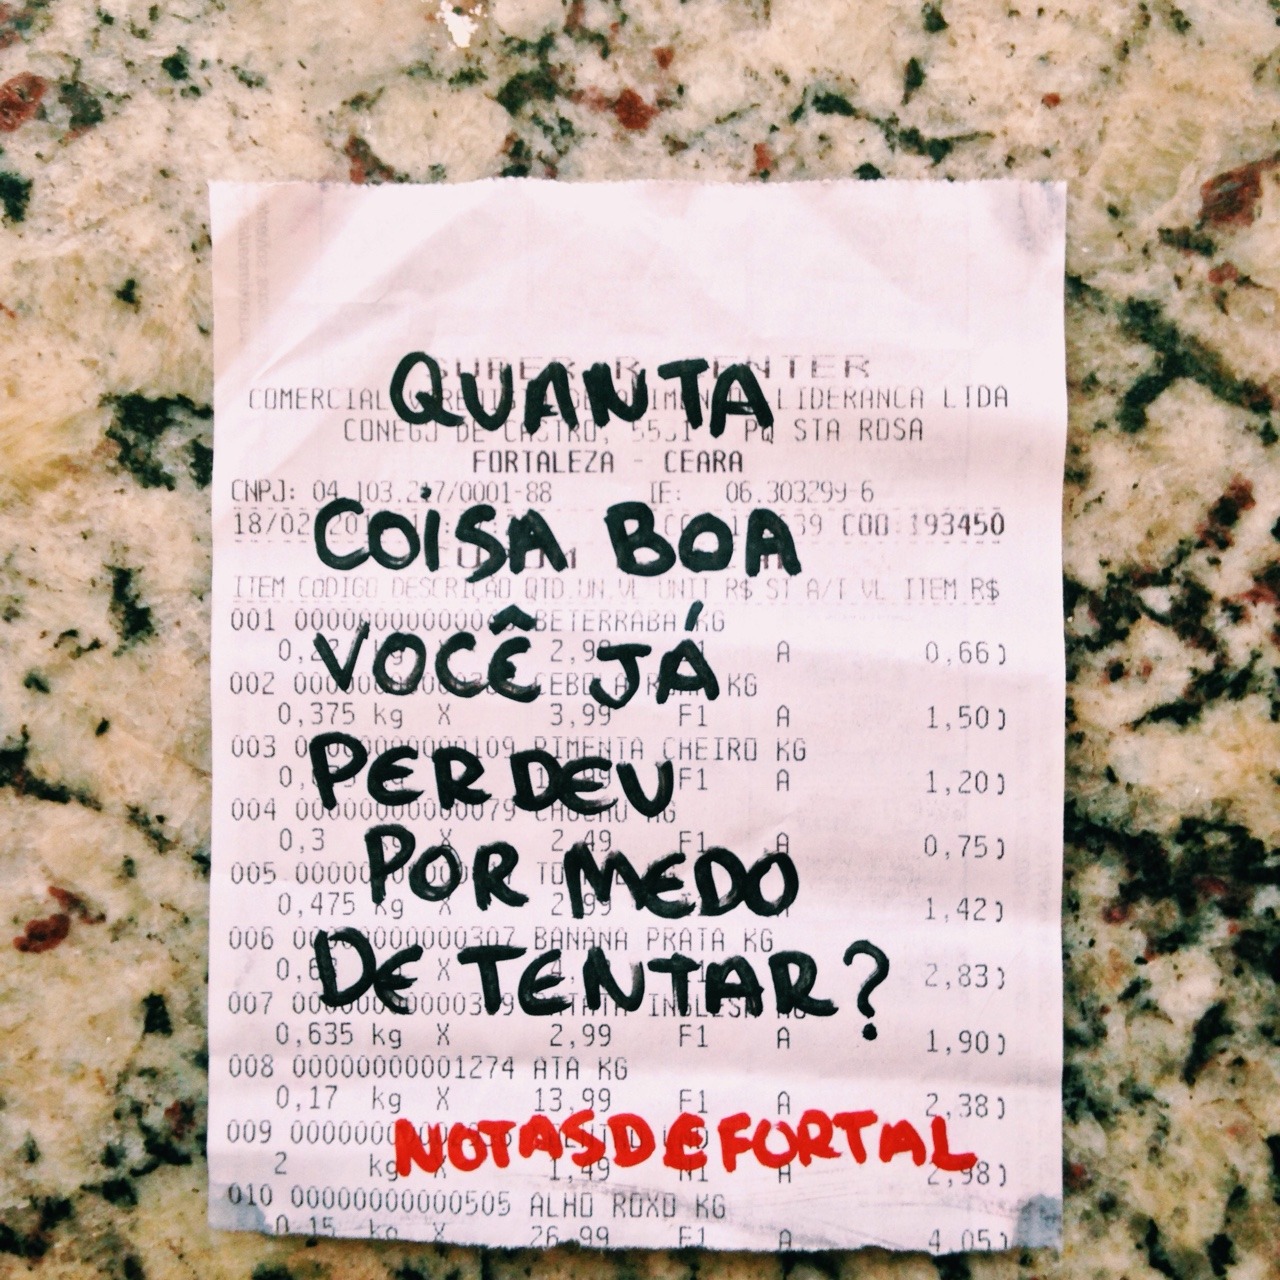 QUANTA
COISA BOA
VOCÊ JÁ
PERDEU
POR MEDO
DE TENTAR?
NOTASDEFORTAL
COMERCIAL LIDERANCA LTDA
CONEGO DE CASTRO, PQ STA ROSA
FORTALEZA - CEARA
CNPJ: IE: 06.303299-6
COO:193450
ITEM CÓDIGO DESCRIÇÃO QTD.UN.VL UNIT R$ ST A/T VL ITEM R$
001 BETERRABA KG
A 0,66)
002 KG
0,375 kg X 3,99 F1 A 1,50)
003 PIMENTA CHEIRO KG
F1 A 1,20)
004 KG
0,3 X 2,49 F1 A 0,75)
005
0,475 kg X 2,99 1,42)
006 BANANA PRATA KG
X 2,83)
007 INGLESA
0,635 kg X 2,99 F1 A 1,90)
008 00000000001274 ATA KG
0,17 kg X 13,99 F1 A 2,38)
009
2 kg 1,49 N1 A 2,98)
010 00000000000505 ALHO ROXO KG
0,15 kg X 26,99 F1 A 4,05)